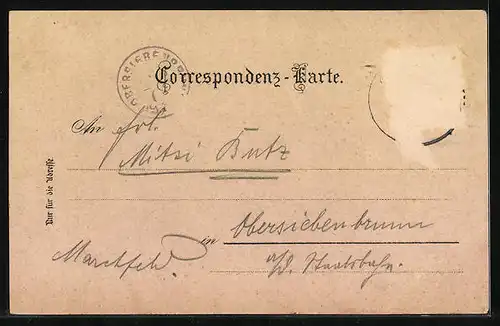 OBERSIEBENBRUNN
Correspondenz-Karte.
An Frl.
Mitzi Butz
Nur für die Adresse.
in Obersiebenbrunn
Marchfeld.
a/d. Staatsbahn.